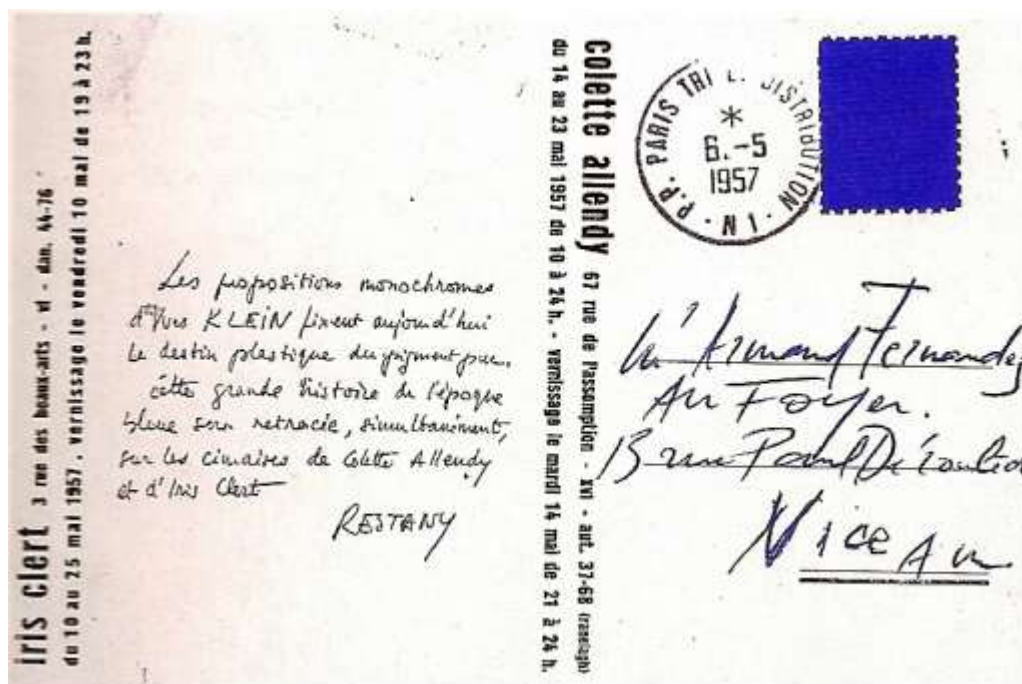 iris clert 3 rue des beaux-arts - vi - dan. 44-76
du 10 au 25 mai 1957. vernissage le vendredi 10 mai de 19 à 23 h.
Les propositions monochromes
d'Yves KLEIN fixent aujourd'hui
le destin plastique du pigment pur.
cette grande histoire de l'époque
bleue sera retracée, simultanément,
sur les cimaises de Colette Allendy
et d'Iris Clert
RESTANY
colette allendy 67 rue de l'assomption - xvi - aut. 37-68 (ranelagh)
du 14 au 23 mai 1957 de 10 à 24 h. - vernissage le mardi 14 mai de 21 à 24 h.
P.P. PARIS TRI ET DISTRIBUTION
*
6.-5
1957
Armand Fernandez
Au Foyer.
Nice A M